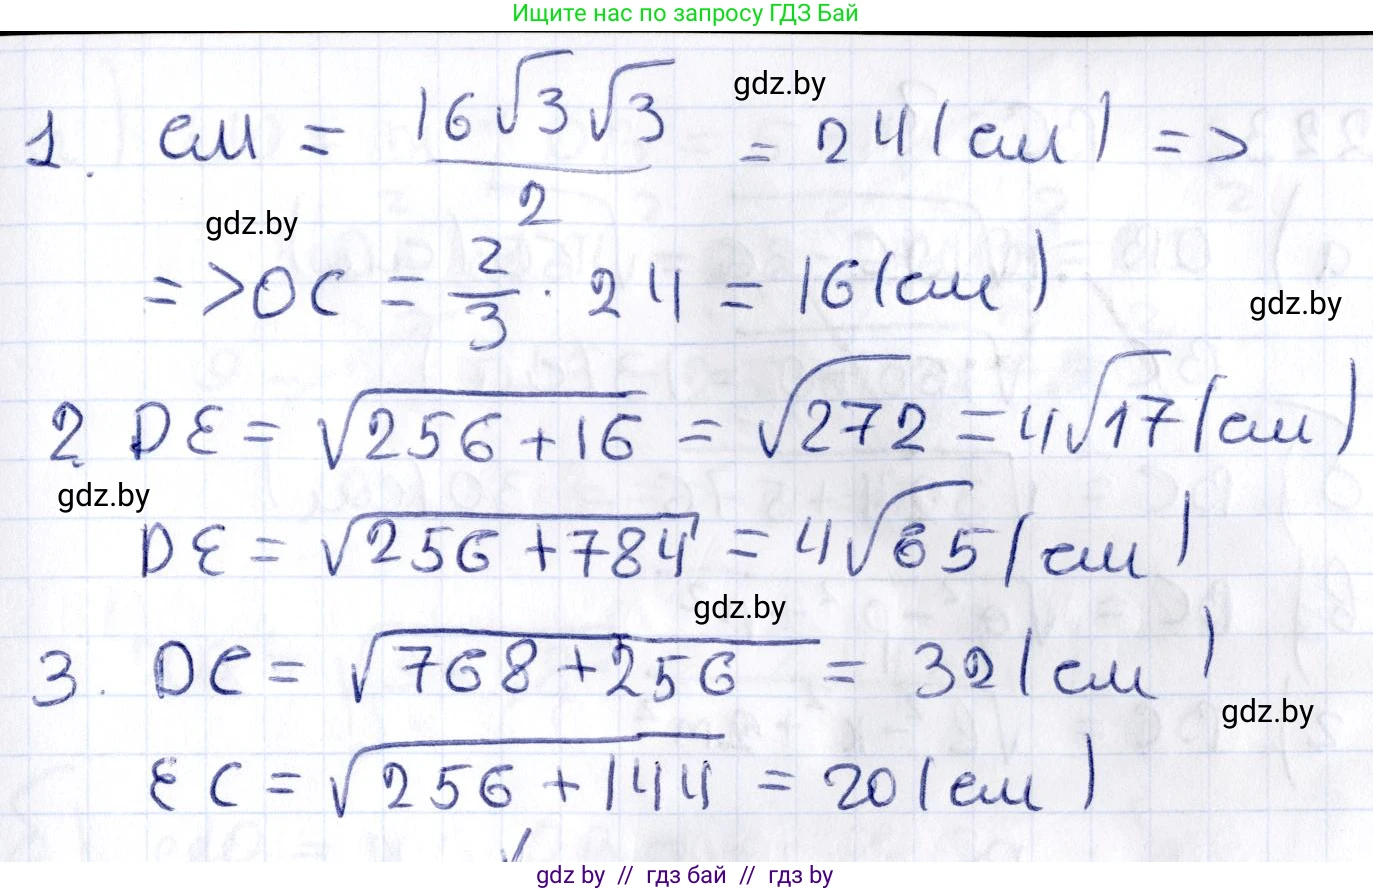 Ищите нас по запросу ГДЗ Бай
gdz.by
1. CM = 16√3√3 / 2 = 24 (см) =>
gdz.by
=> OC = 2/3 · 24 = 16 (см)
gdz.by
2. DE = √256+16 = √272 = 4√17 (см)
gdz.by
DE = √256+784 = 4√65 (см)
gdz.by
3. DC = √768+256 = 32 (см)
gdz.by
EC = √256+144 = 20 (см)
gdz.by // гдз бай // гдз by